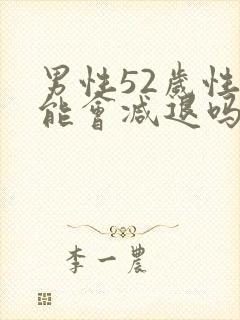 男性52歲性
能會減退吗
李一農